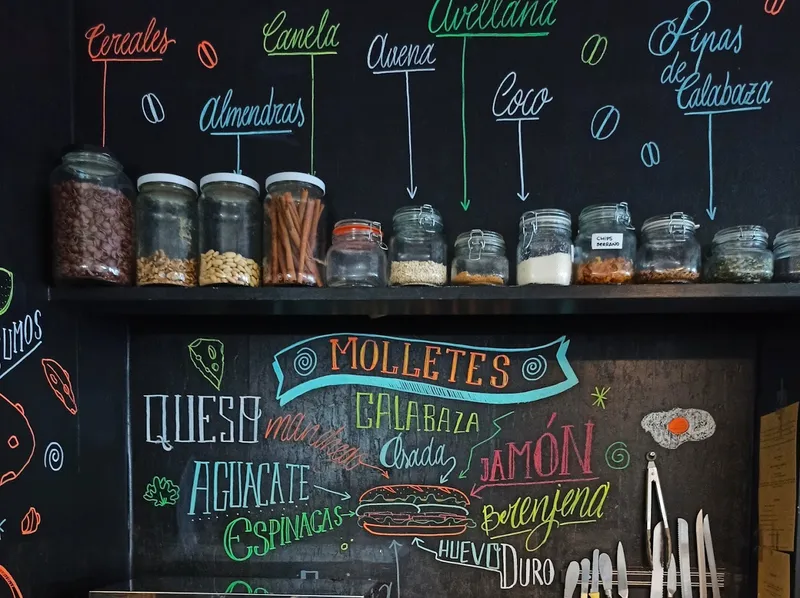 Cereales
Canela
Avena
Avellana
Pipas
de
Calabaza
Almendras
Coco
CHIPS
SERRANO
UMOS
MOLLETES
QUESO manchego
CALABAZA
Asada
JAMÓN
AGUACATE
ESPINACAS
Berenjena
HUEVO DURO